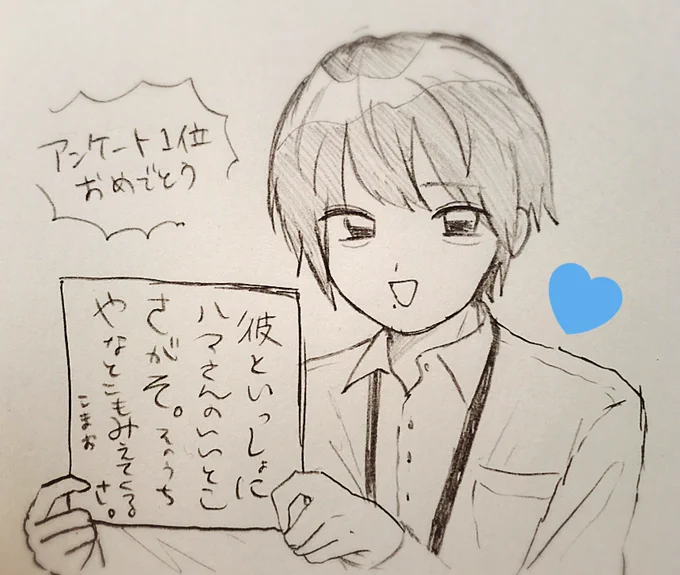 アンケート1位
おめでとう
彼といっしょに
ハマさんのいいとこ
さがそ。そのうち
やなとこもみえてくるさ。
こまお